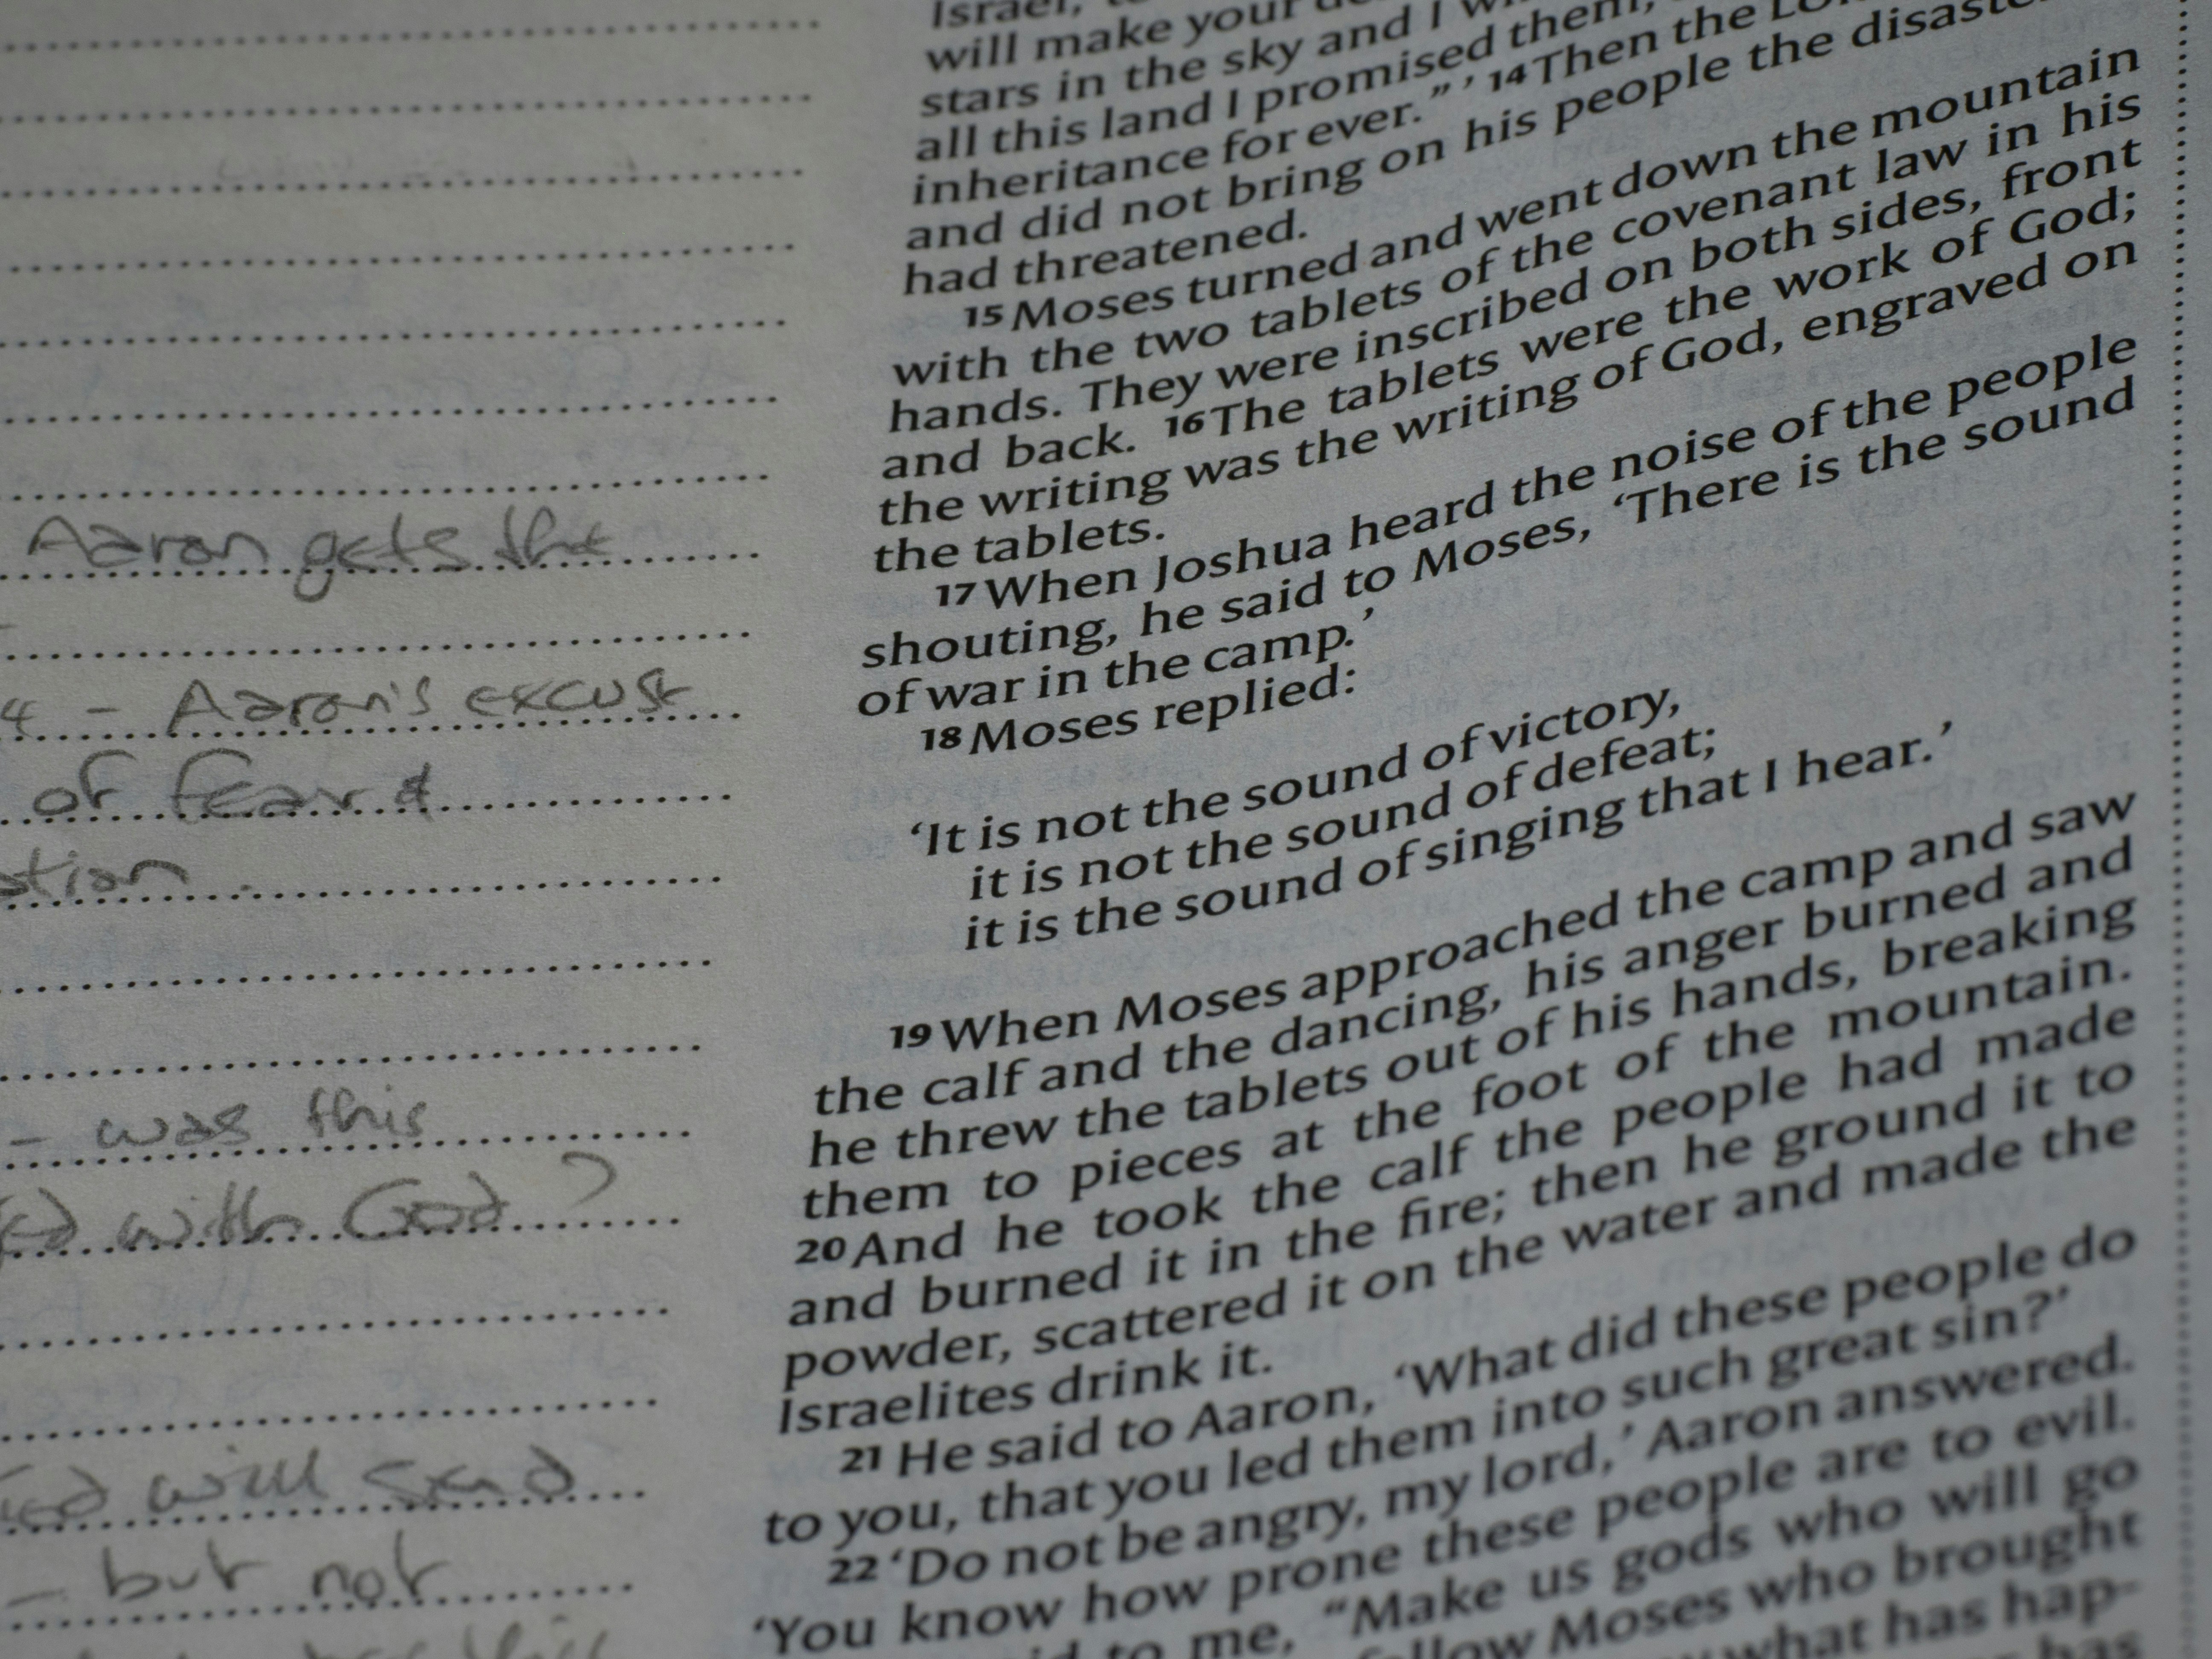 Aaron gets that
4 - Aaron's excuse
of fear &
- was this
with God?
will send
- but not
Israel,
will make your
stars in the sky and I
all this land I promised them,
inheritance for ever.” ’ 14 Then the
and did not bring on his people the disaster
had threatened.
15 Moses turned and went down the mountain
with the two tablets of the covenant law in his
hands. They were inscribed on both sides, front
and back. 16 The tablets were the work of God;
the writing was the writing of God, engraved on
the tablets.
17 When Joshua heard the noise of the people
shouting, he said to Moses, ‘There is the sound
of war in the camp.’
18 Moses replied:
‘It is not the sound of victory,
it is not the sound of defeat;
it is the sound of singing that I hear.’
19 When Moses approached the camp and saw
the calf and the dancing, his anger burned and
he threw the tablets out of his hands, breaking
them to pieces at the foot of the mountain.
20 And he took the calf the people had made
and burned it in the fire; then he ground it to
powder, scattered it on the water and made the
Israelites drink it.
21 He said to Aaron, ‘What did these people do
to you, that you led them into such great sin?’
22 ‘Do not be angry, my lord,’ Aaron answered.
‘You know how prone these people are to evil.
to me, “Make us gods who will go
Moses who brought
what has hap-
has